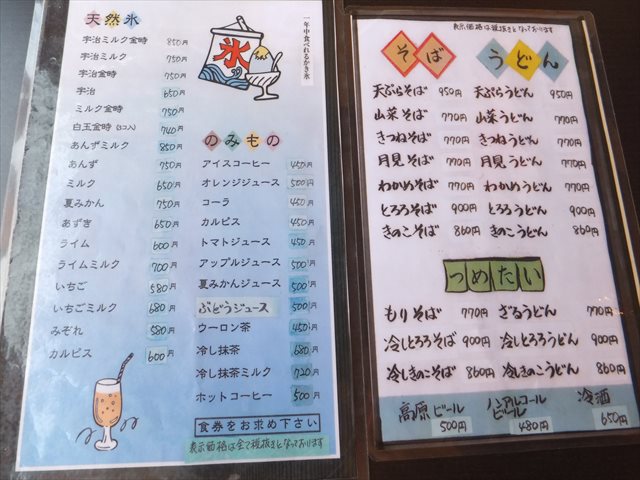 天然氷
宇治ミルク金時 850円
宇治ミルク 750円
宇治金時 750円
宇治 650円
ミルク金時 750円
白玉金時(3コ入) 740円
あんずミルク 850円
あんず 750円
ミルク 650円
夏みかん 750円
あずき 650円
ライム 600円
ライムミルク 700円
いちご 580円
いちごミルク 680円
みぞれ 580円
カルピス 600円
氷
一年中食べれるかき氷
のみもの
アイスコーヒー 450円
オレンジジュース 500円
コーラ 450円
カルピス 450円
トマトジュース 450円
アップルジュース 500円
夏みかんジュース 500円
ぶどうジュース 500円
ウーロン茶 450円
冷し抹茶 680円
冷し抹茶ミルク 720円
ホットコーヒー 500円
食券をお求め下さい
表示価格は全て税抜きとなっております
表示価格は税抜きとなっております
そば
天ぷらそば 950円
山菜そば 770円
きつねそば 770円
月見そば 770円
わかめそば 770円
とろろそば 900円
きのこそば 860円
うどん
天ぷらうどん 950円
山菜うどん 770円
きつねうどん 770円
月見うどん 770円
わかめうどん 770円
とろろうどん 900円
きのこうどん 860円
つめたい
もりそば 770円 ざるうどん 770円
冷しとろろそば 900円 冷しとろろうどん 900円
冷しきのこそば 860円 冷しきのこうどん 860円
高原ビール 500円
ノンアルコールビール 480円
冷酒 650円